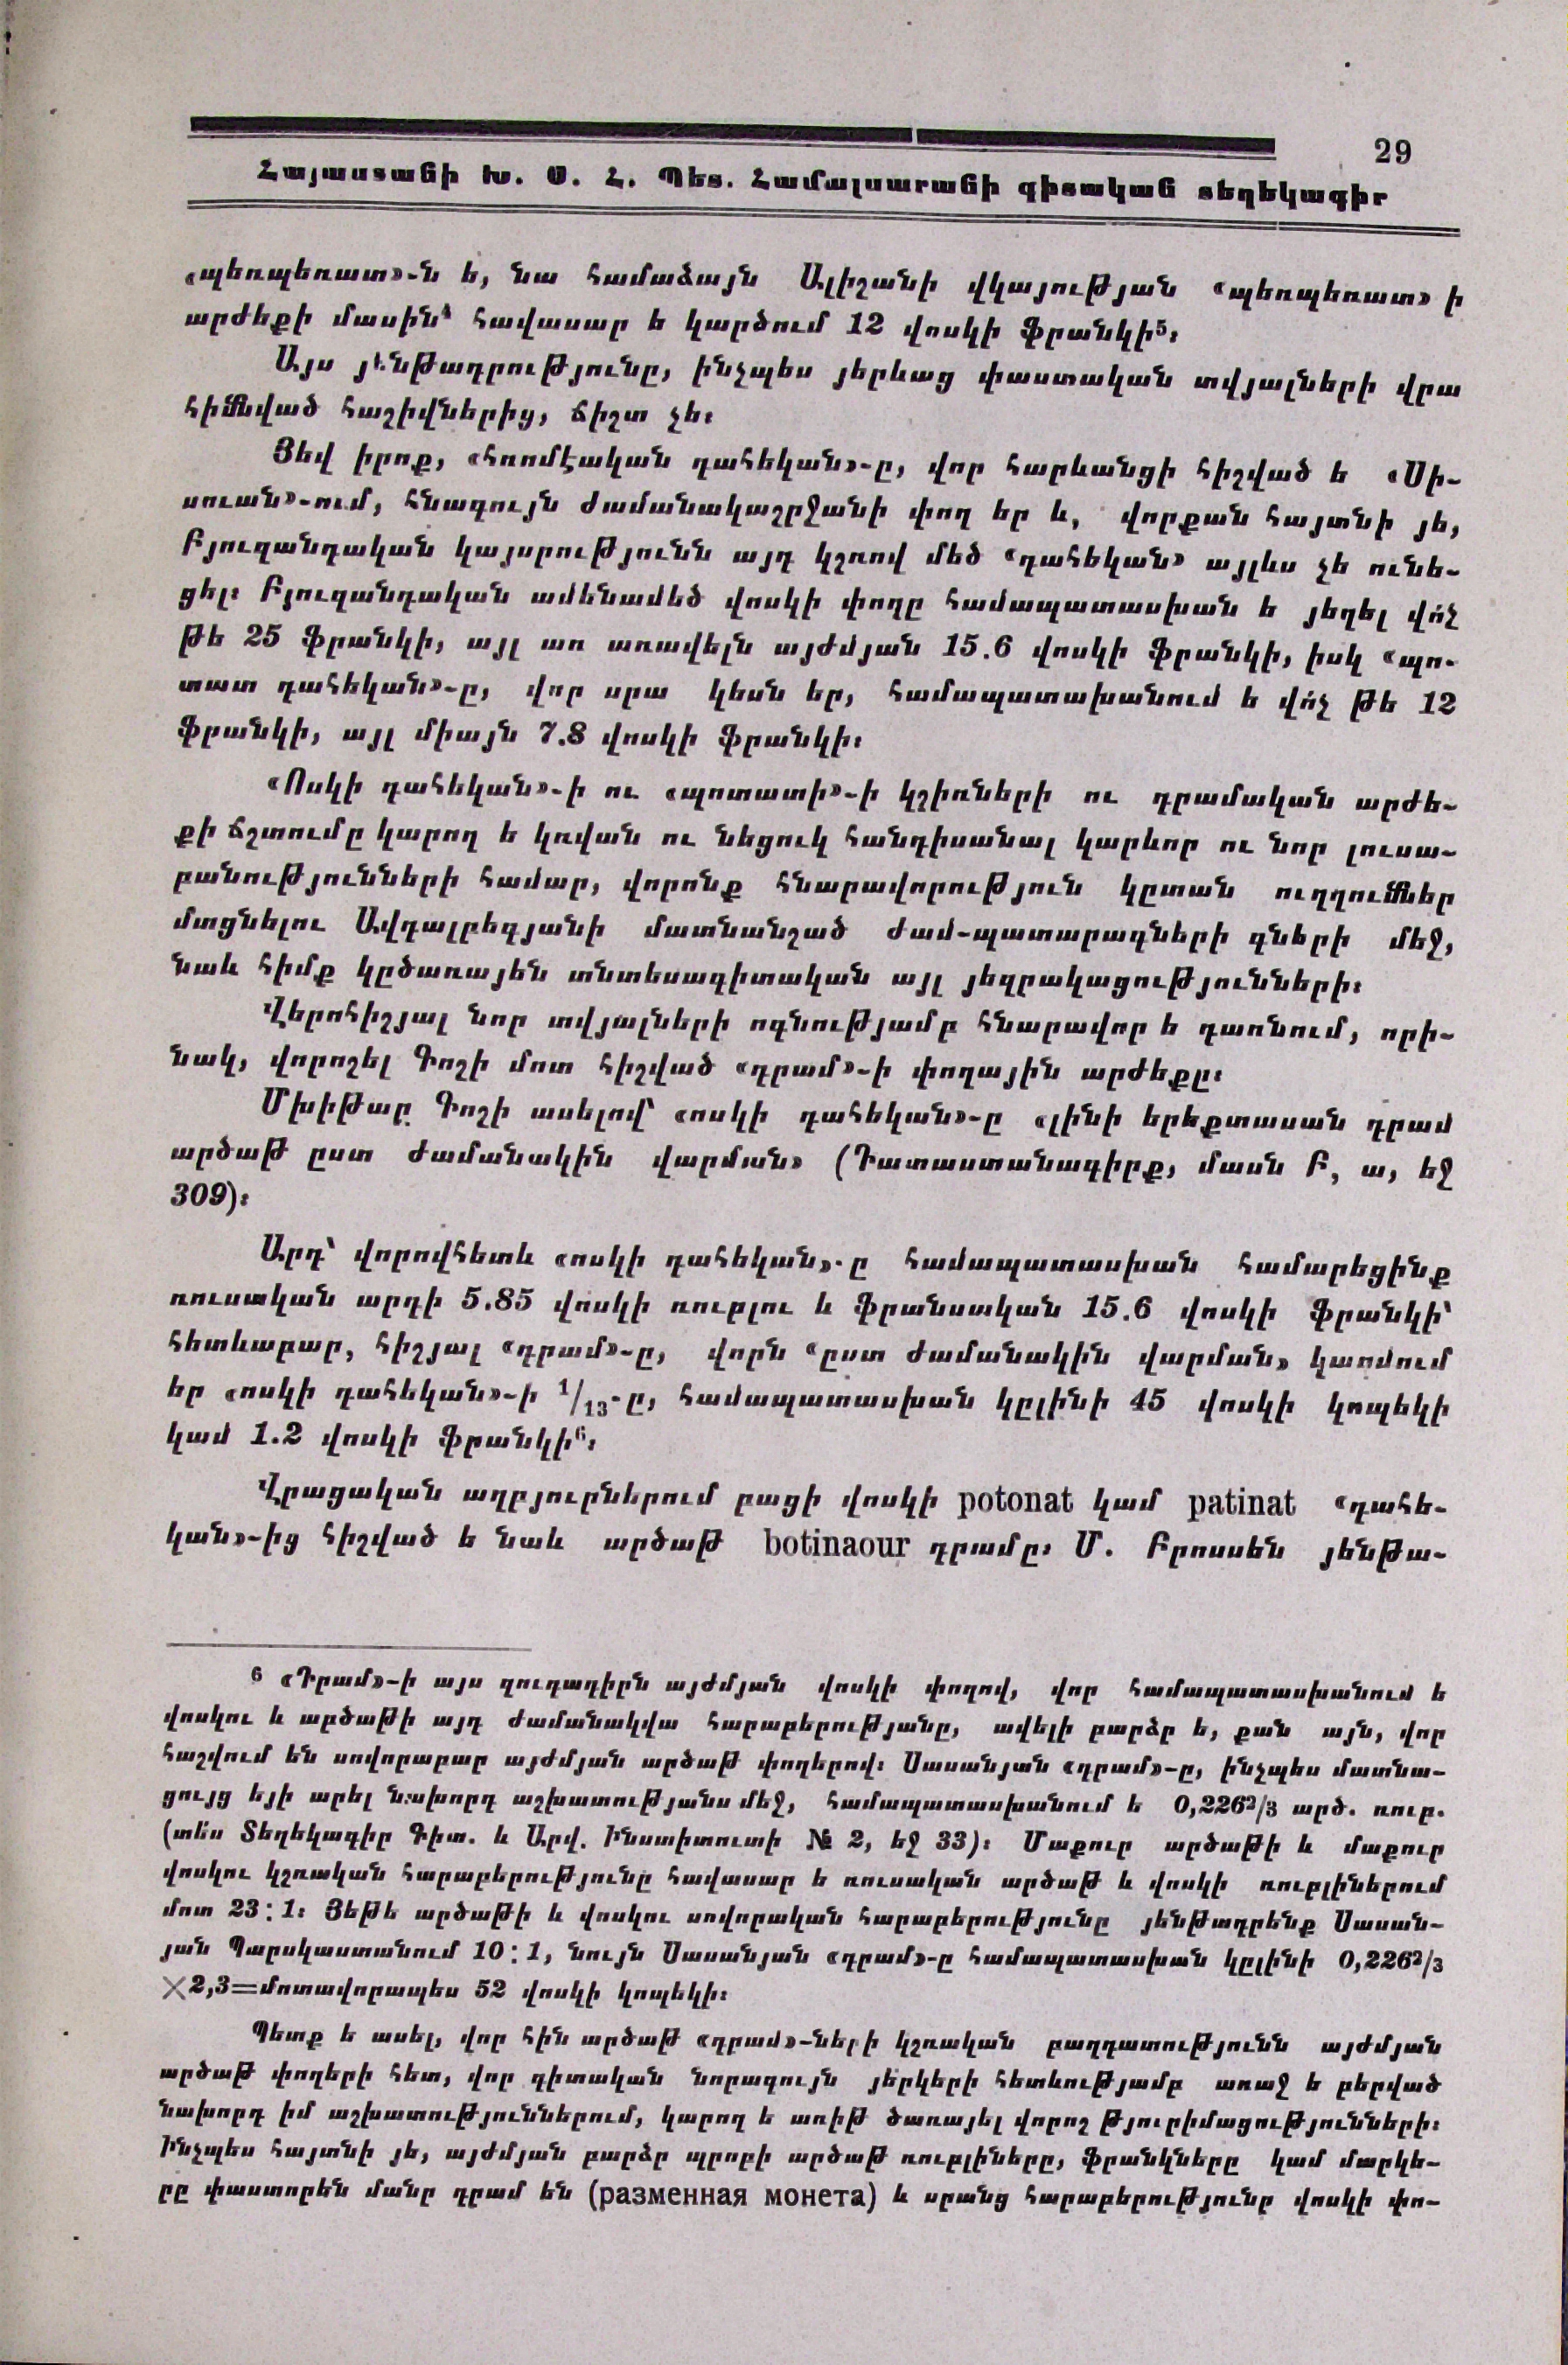 29
Հայաստանի Խ. Ս. Հ. Պետ. Համալսարանի գիտական տեղեկագիր
«պեռպեռատ»-ն ե, նա համաձայն Ալիշանի վկայության «պեռպեռատ» ի
արժեքի մասին⁴ հավասար ե կարծում 12 վոսկի ֆրանկի⁵։
Այս յենթադրությունը, ինչպես յերևաց փաստական տվյալների վրա
հիմնված հաշիվներից, ճիշտ չե։
Յեվ իրոք, «հռոմէական դահեկան»-ը, վոր հարևանցի հիշված ե «Սի-
սուան»-ում, հնագույն ժամանակաշրջանի փող եր և, վորքան հայտնի յե,
Բյուզանդական կայսրությունն այդ կշռով մեծ «դահեկան» այլևս չե ունե-
ցել։ Բյուզանդական ամենամեծ վոսկի փողը համապատասխան ե յեղել վո՛չ
թե 25 ֆրանկի, այլ առ առավելն այժմյան 15.6 վոսկի ֆրանկի, իսկ «պո-
տատ դահեկան»-ը, վոր սրա կեսն եր, համապատախանում ե վո՛չ թե 12
ֆրանկի, այլ միայն 7.8 վոսկի ֆրանկի։
«Ոսկի դահեկան»-ի ու «պոտատի»-ի կշիռների ու դրամական արժե-
քի ճշտումը կարող ե կռվան ու նեցուկ հանդիսանալ կարևոր ու նոր լուսա-
բանությունների համար, վորոնք հնարավորություն կըտան ուղղումներ
մտցնելու Ավդալբեգյանի մատնանշած ժամ-պատարագների գների մեջ,
նաև հիմք կըծառայեն տնտեսագիտական այլ յեզրակացությունների։
Վերոհիշյալ նոր տվյալների ոգնությամբ հնարավոր ե դառնում, որի-
նակ, վորոշել Գոշի մոտ հիշված «դրամ»-ի փողային արժեքը։
Մխիթար Գոշի ասելով՝ «ոսկի դահեկան»-ը «լինի երեքտասան դրամ
արծաթ ըստ ժամանակին վարման» (Դատաստանագիրք, մասն Բ, ա, եջ
309)։
Արդ՝ վորովհետև «ոսկի դահեկան»-ը համապատասխան համարեցինք
ռուսական արդի 5.85 վոսկի ռուբլու և ֆրանսական 15.6 վոսկի ֆրանկի՝
հետևաբար, հիշյալ «դրամ»-ը, վորն «ըստ ժամանակին վարման» կազմում
եր «ոսկի դահեկան»-ի ¹/₁₃-ը, համապատասխան կըլինի 45 վոսկի կոպեկի
կամ 1.2 վոսկի ֆրանկի⁶։
Վրացական աղբյուրներում բացի վոսկի potonat կամ patinat «դահե-
կան»-ից հիշված ե նաև արծաթ botinaour դրամը։ Մ. Բրոսսեն յենթա-
⁶ «Դրամ»-ի այս զուգադիրն այժմյան վոսկի փողով, վոր համապատասխանում ե
վոսկու և արծաթի այդ ժամանակվա հարաբերությանը, ավելի բարձր ե, քան այն, վոր
հաշվում են սովորաբար այժմյան արծաթ փողերով։ Սասանյան «դրամ»-ը, ինչպես մատնա-
ցույց եյի արել նախորդ աշխատությանս մեջ, համապատասխանում ե 0,226²/₃ արծ. ռուբ.
(տե՛ս Տեղեկագիր Գիտ. և Արվ. Ինստիտուտի № 2, եջ 33)։ Մաքուր արծաթի և մաքուր
վոսկու կշռական հարաբերությունը հավասար ե ռուսական արծաթ և վոսկի ռուբլիներում
մոտ 23։1։ Յեթե արծաթի և վոսկու սովորական հարաբերությունը յենթադրենք Սասան-
յան Պարսկաստանում 10։1, նույն Սասանյան «դրամ»-ը համապատասխան կըլինի 0,226²/₃
×2,3=մոտավորապես 52 վոսկի կոպեկի։
Պետք ե ասել, վոր հին արծաթ «դրամ»-ների կշռական բաղդատությունն այժմյան
արծաթ փողերի հետ, վոր գիտական նորագույն յերկերի հետևությամբ առաջ ե բերված
նախորդ իմ աշխատություններում, կարող ե առիթ ծառայել վորոշ թյուրիմացությունների։
Ինչպես հայտնի յե, այժմյան բարձր պրոբի արծաթ ռուբլիները, ֆրանկները կամ մարկե-
րը փաստորեն մանր դրամ են (разменная монета) և սրանց հարաբերությունը վոսկի փո-